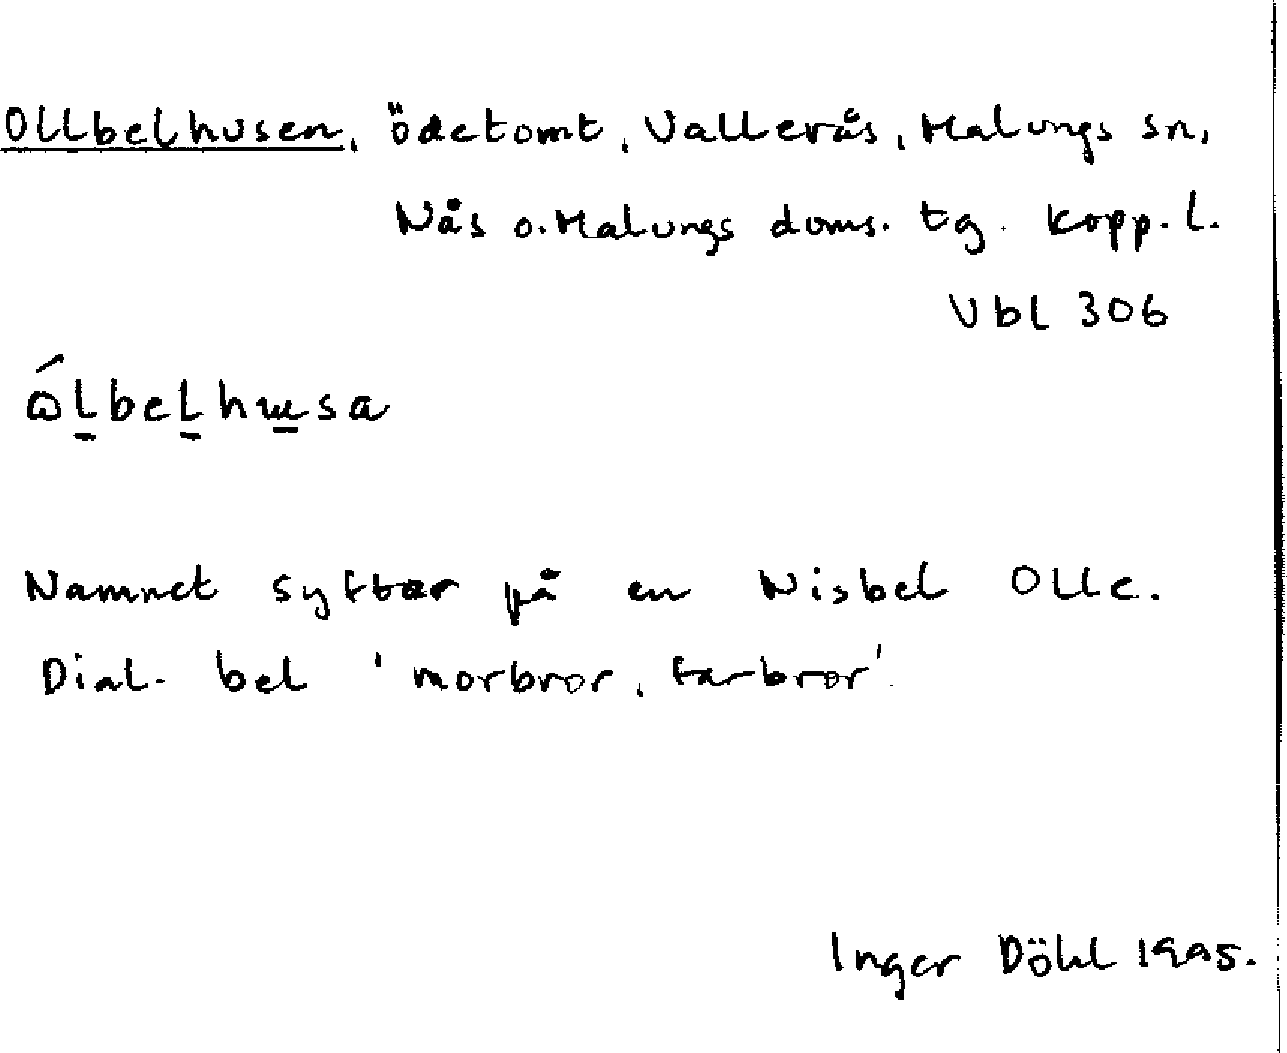 Ollbelhusen, ödetomt, Vallerås, Malungs sn,
Nås o. Malungs doms. tg. Kopp. l.
Vbl 306
ɷ́l̠bel̠hɯ̠sa
Namnet syftar på en Nisbel Olle.
Dial. bel 'morbror, farbror'
Inger Döhl 1995.